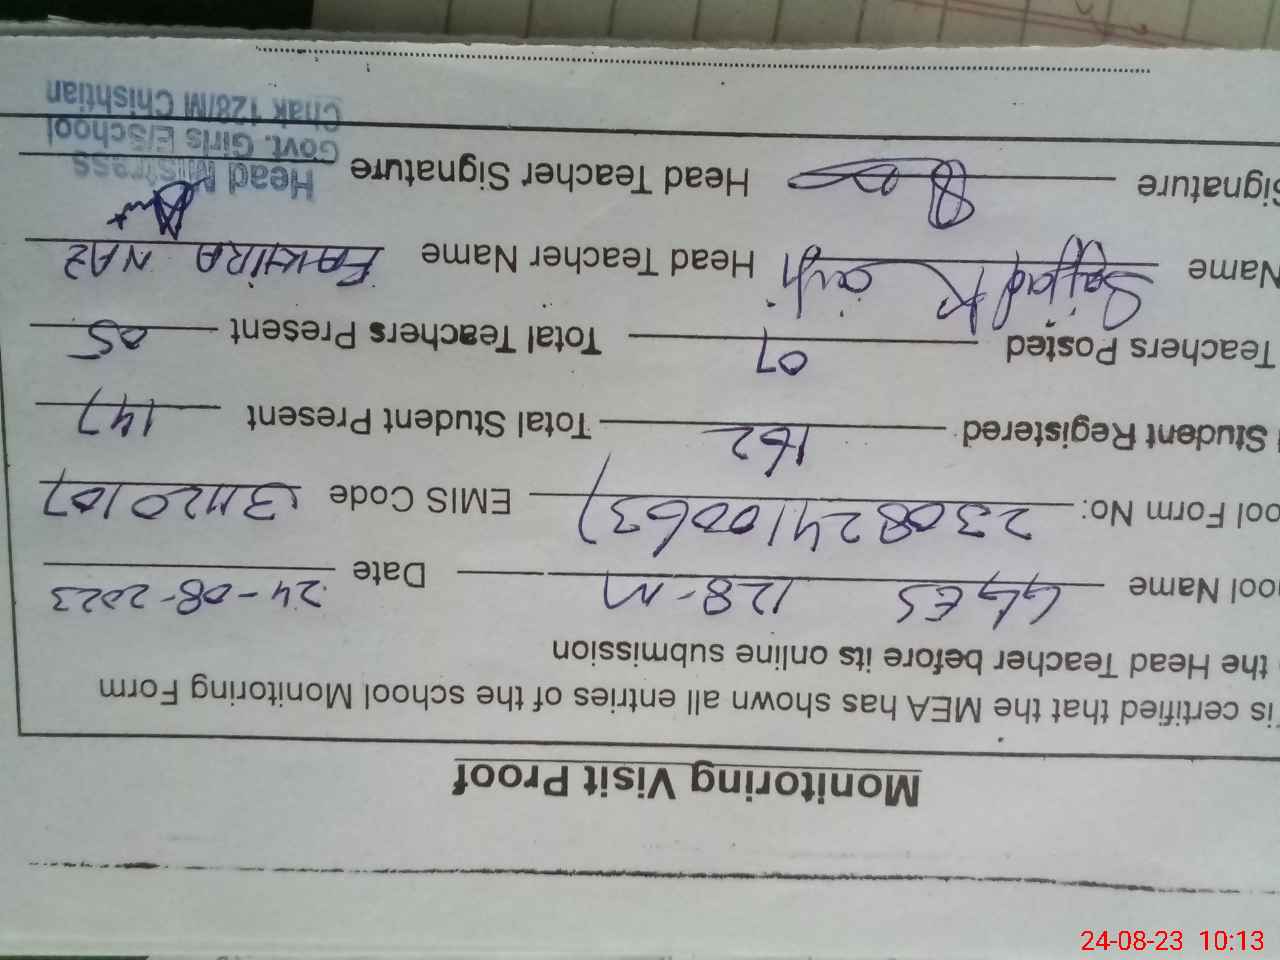 Monitoring Visit Proof
is certified that the MEA has shown all entries of the school Monitoring Form
the Head Teacher before its online submission
ool Name GGES 128-M Date 24-08-2023
ool Form No: 230824100637 EMIS Code 31120107
Student Registered 162 Total Student Present 147
Teachers Posted 07 Total Teachers Present 05
Name Sajjad Head Teacher Name FAKHIRA NAZ
Signature Head Teacher Signature
Head Mistress
Govt. Girls E/School
Chak 128/M Chishtian
24-08-23 10:13